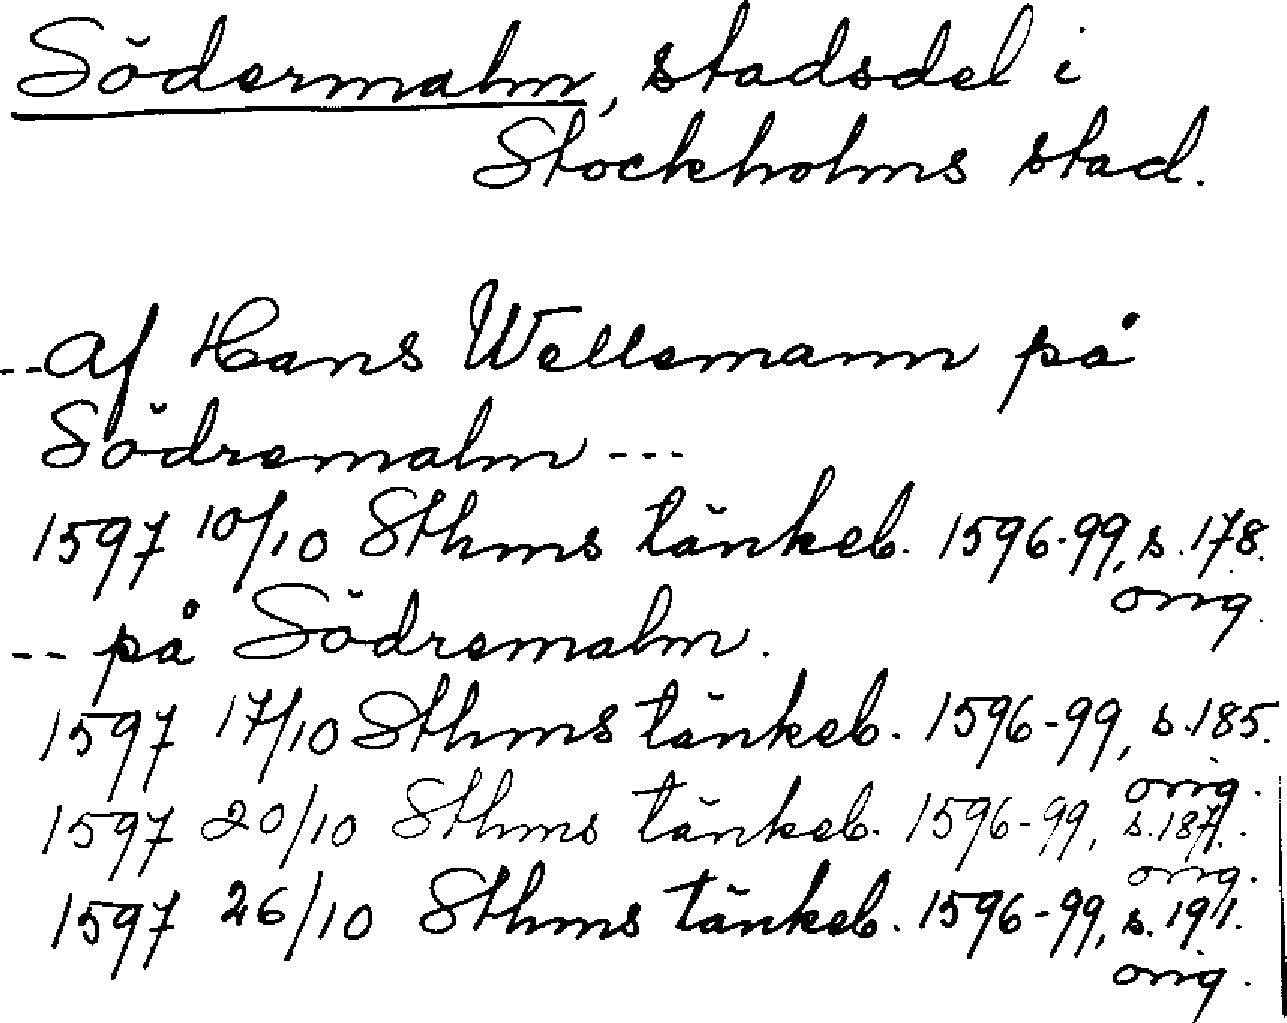 Södermalm, stadsdel i
Stockholms stad.
--af Hans Wellemann på
Södremalm ---
1597 10/10 Sthms tänkeb. 1596-99, s.178.
orig.
-- på Södremalm.
1597 17/10 Sthms tänkeb. 1596-99, s.185.
orig.
1597 20/10 Sthms tänkeb. 1596-99, s.187.
orig.
1597 26/10 Sthms tänkeb. 1596-99, s.191.
orig.